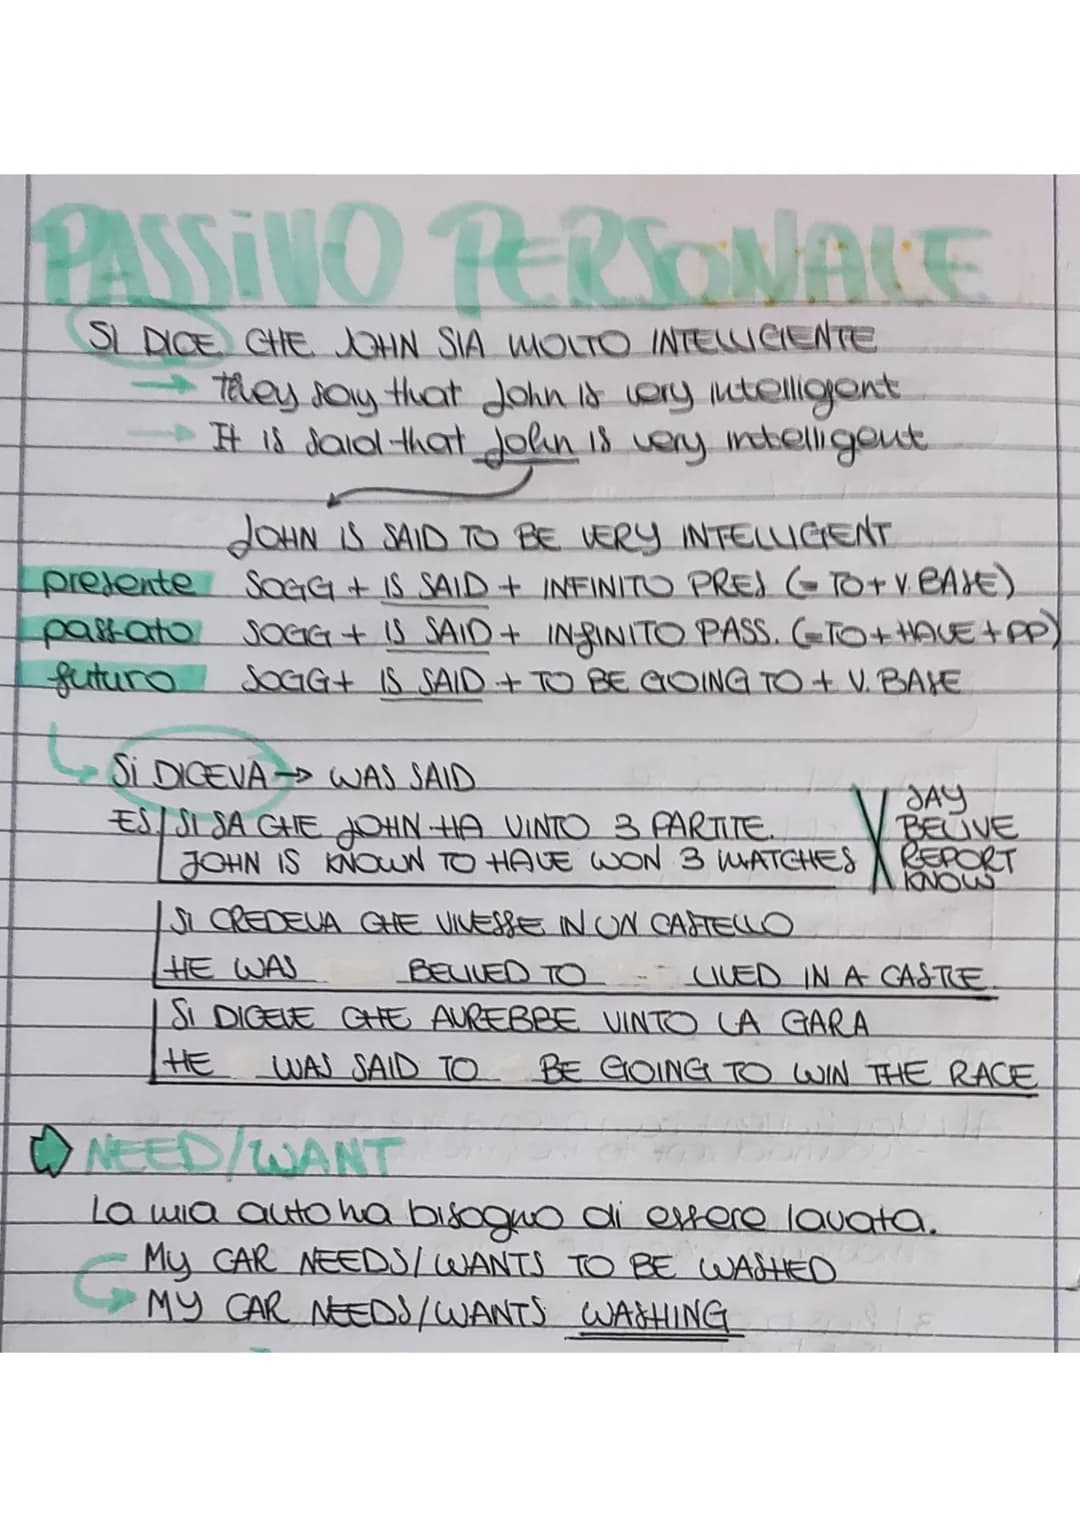 PASSIVO PERSONALE
SI DICE CHE JOHN SIA MOLTO INTELLIGIENTE
→ they say that John is very intelligent
→ It is said that John is very intelligent
JOHN IS SAID TO BE VERY INTELLIGENT
presente SOGG + IS SAID + INFINITO PRES (= TO + V. BASE)
passato SOGG + IS SAID + INFINITO PASS. (= TO + HAVE + PP)
futuro SOGG + IS SAID + TO BE GOING TO + V. BASE
SI DICEVA → WAS SAID
SAY
ES/ SI SA CHE JOHN HA VINTO 3 PARTITE. BELIVE
JOHN IS KNOWN TO HAVE WON 3 MATCHES REPORT
KNOW
SI CREDEVA CHE VIVESSE IN UN CASTELLO
HE WAS BELIVED TO LIVED IN A CASTLE
SI DICEVE CHE AVREBBE VINTO LA GARA
HE WAS SAID TO BE GOING TO WIN THE RACE
NEED/WANT
La mia auto ha bisogno di essere lavata.
My CAR NEEDS/WANTS TO BE WASHED
MY CAR NEEDS/WANTS WASHING